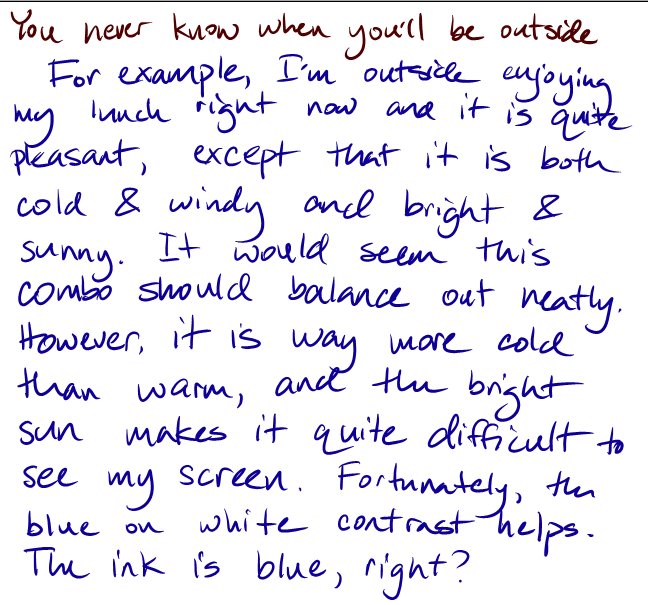 You never know when you'll be outside
For example, I'm outside enjoying
my lunch right now and it is quite
pleasant, except that it is both
cold & windy and bright &
sunny. It would seem this
combo should balance out neatly.
However, it is way more cold
than warm, and the bright
sun makes it quite difficult to
see my screen. Fortunately, the
blue on white contrast helps.
The ink is blue, right?